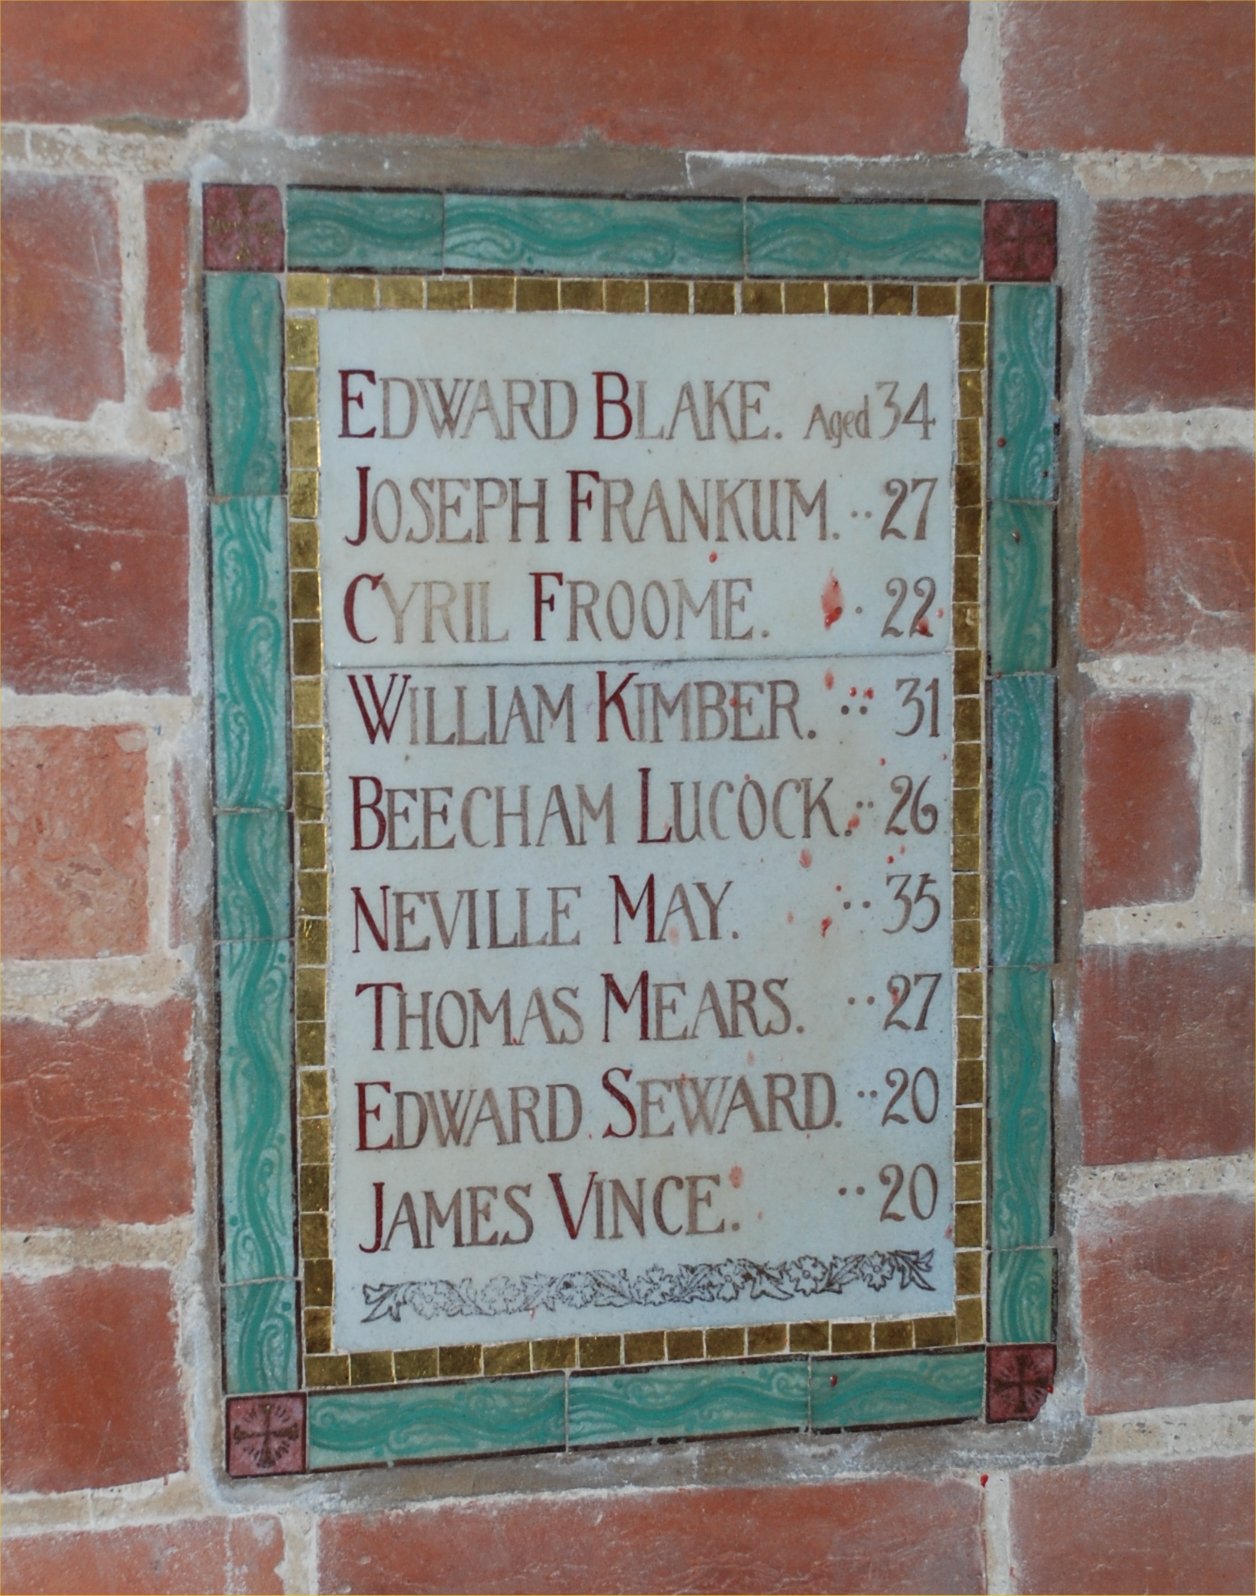 EDWARD BLAKE. Aged 34
JOSEPH FRANKUM. .. 27
CYRIL FROOME. .. 22
WILLIAM KIMBER. .. 31
BEECHAM LUCOCK. .. 26
NEVILLE MAY. .. 35
THOMAS MEARS. .. 27
EDWARD SEWARD. .. 20
JAMES VINCE. .. 20